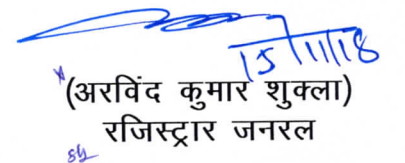 15/11/18
(अरविंद कुमार शुक्ला)
रजिस्ट्रार जनरल